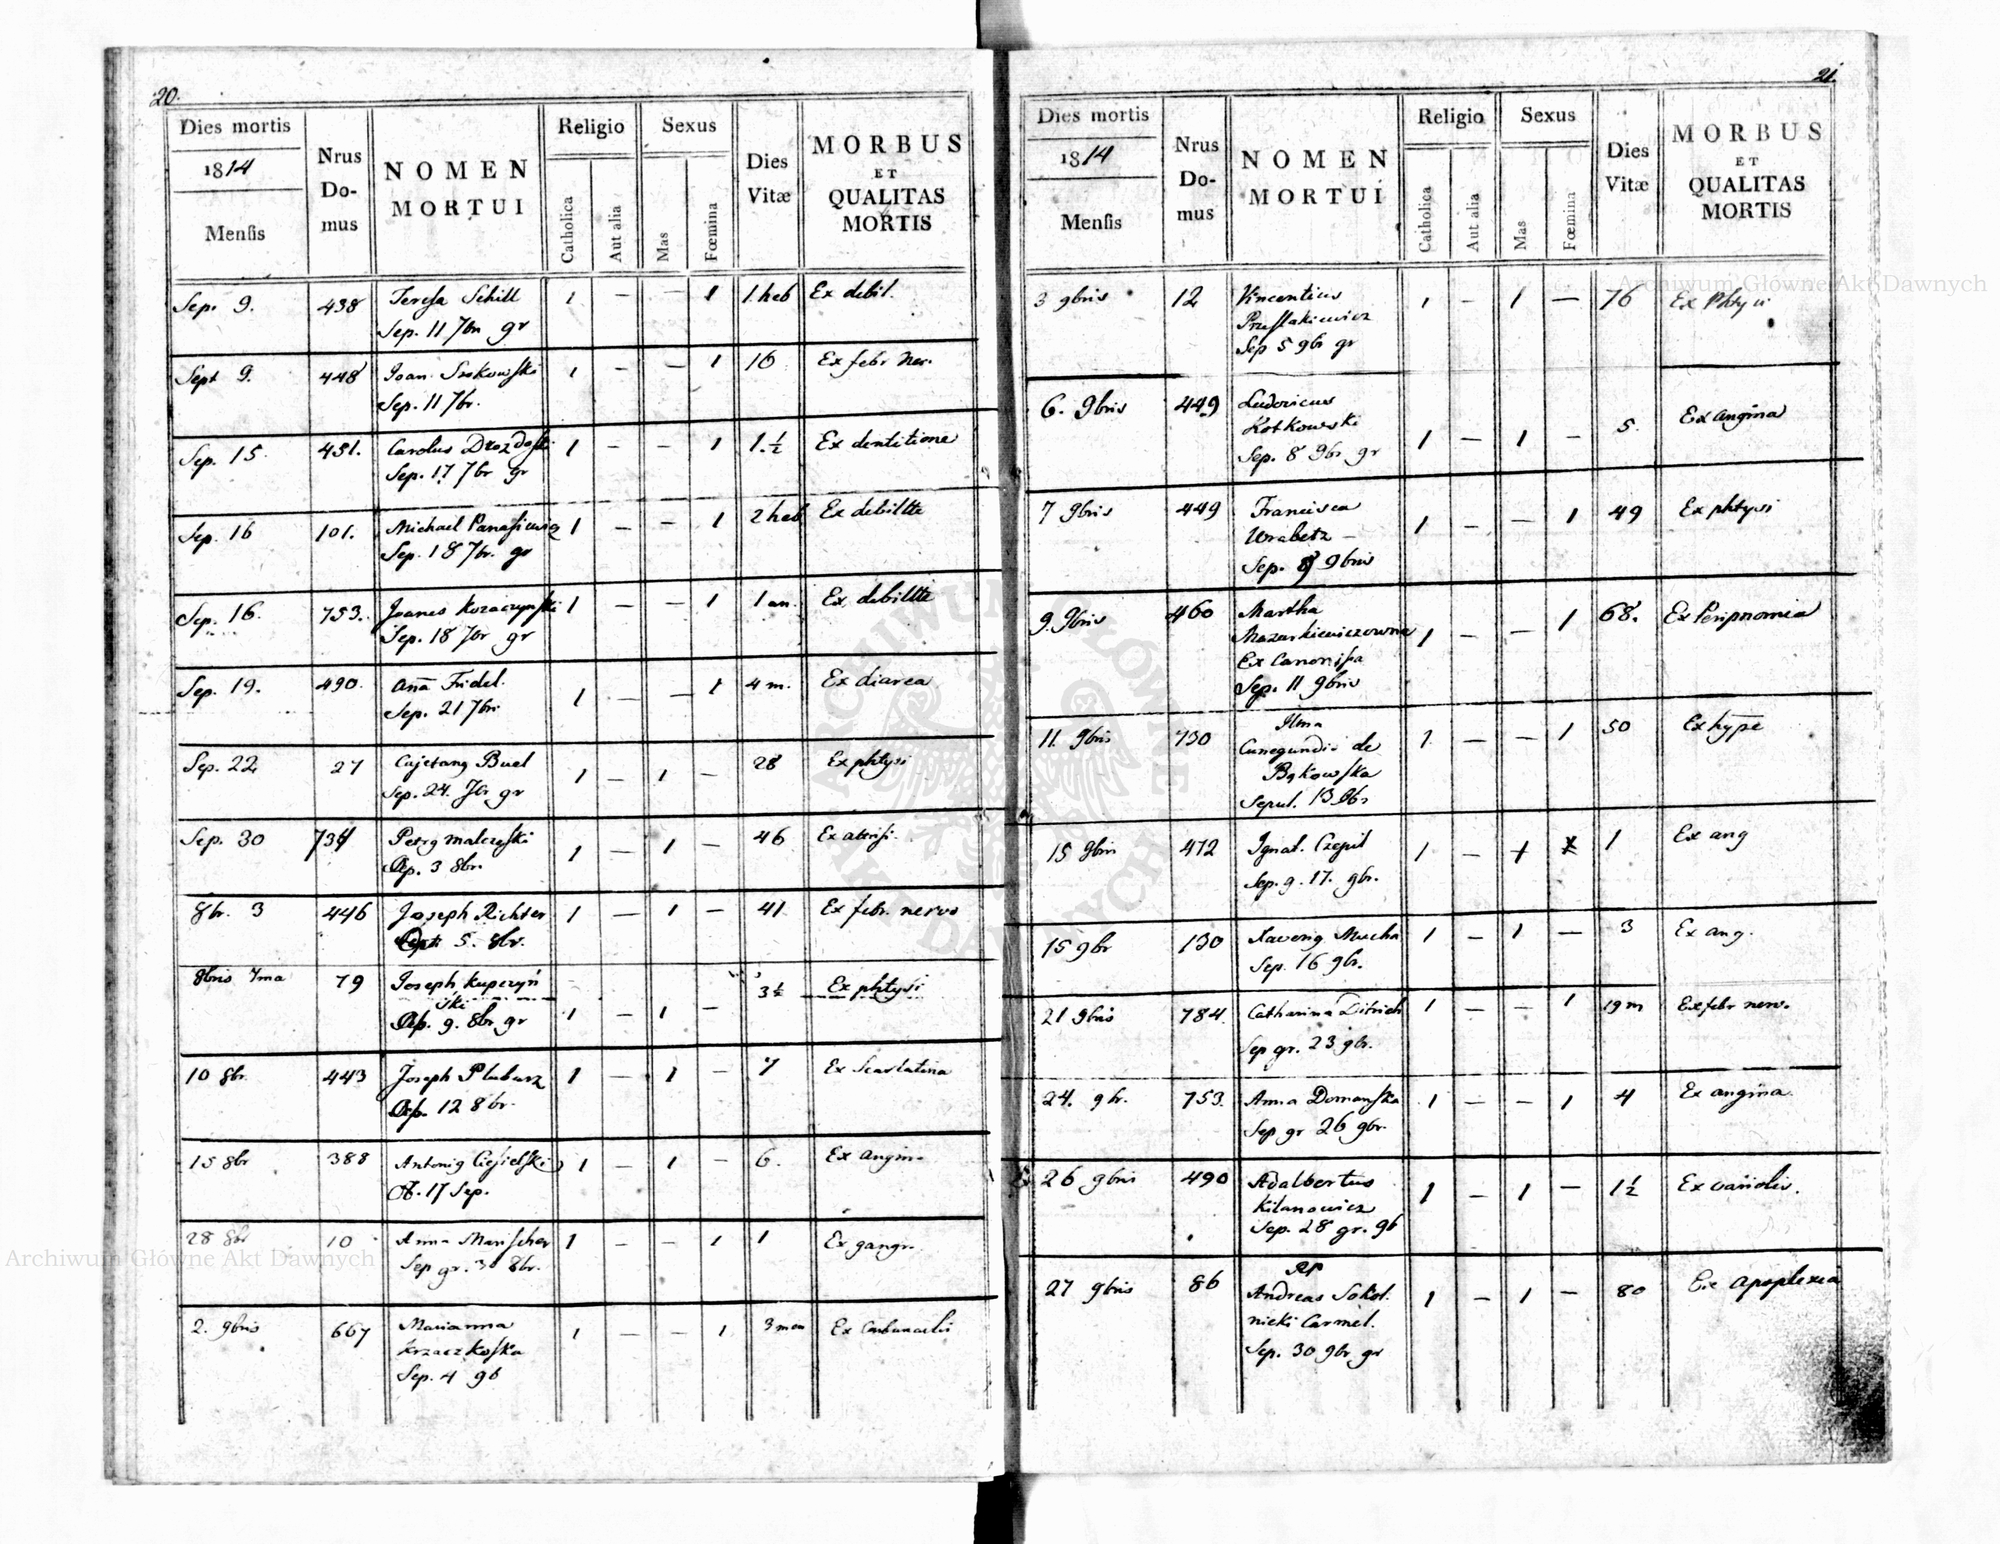 20.
Dies mortis
1814
Mensis
Nrus Domus
NOMEN MORTUI
Religio
Catholica
Aut alia
Sexus
Mas
Fœmina
Dies Vitæ
MORBUS ET QUALITAS MORTIS
Sep. 9. 438 Teresa Schill 1 — — 1 1. heb Ex debil.
Sep. 11 7br gr
Sept 9. 448 Joan. 1 — — 1 16 Ex febr ner.
Sep. 11 7br.
Sep. 15 451. Carolus Drozdoski 1 — — 1 1.½ Ex dentitione
Sep. 17 7br gr
Sep. 16 101. Michael Panasiewicz 1 — — 1 2 heb Ex debilitte
Sep. 18 7br. gr
Sep. 16. 753. Joanes Kozaczynski 1 — — 1 1 an. Ex debilitte
Sep. 18 7br gr
Sep. 19. 490. Aña Fridel. 1 — — 1 4 m. Ex diarea
Sep. 21 7bris
Sep. 22 27 Cajetang Buel 1 — 1 — 28 Ex phtysi
Sep. 24. 7br gr
Sep. 30 Petrg Malczeski 1 — 1 — 46
3 8br.
8br. 3 446 Joseph Richter 1 — 1 — 41 Ex febr. nervo
5. 8br.
8bris 7ma 79 Joseph Kupczyń 3½ Ex phtysi
ski
9. 8br gr 1 — 1 —
10 8br. 443 Joseph Plubarz 1 — 1 — 7 Ex Scarlatina
12 8br.
15 8br 388 Antonig Ciesielski 1 — 1 — 6. Ex angin.
17 Sep.
28 8br 10 Anna Manscher 1 — — 1 1 Ex gangr.
Sep gr. 30 8br.
2. 9bris 667 Marianna 1 — — 1 3 men Ex Carbunculis
Krzaczkoska
Sep. 4 9b
21.
Dies mortis
1814
Mensis
Nrus Domus
NOMEN MORTUI
Religio
Catholica
Aut alia
Sexus
Mas
Fœmina
Dies Vitæ
MORBUS ET QUALITAS MORTIS
3 9bris 12 Vincentius 1 — 1 — 76 Ex Phtysi
Przeslakiewicz
Sep 5 9br gr
6. 9bris 449 Ludovicus
Kotkowski 1 — 1 — 5. Ex angina
Sep. 8 9br gr
7 9bris 449 Francisca 1 — — 1 49 Ex phtysi
Wrabetz —
Sep. 9 9bris
9. 9bris 460 Martha 1 — — 1 68. Ex Peripnomia
Mazurkiewiczowna
Ex Canonissa
Sep. 11 9bris
11. 9bris 730 Ilma 1 — — 1 50 Ex hype
Cunegundis de
Bąkowska
Sepul. 13
15 9bris 472 Ignat. Czepil 1 — 1 1 Ex ang
Sep. g. 17. 9br.
15 9br 130 Xaverig Mucha 1 — 1 — 3 Ex ang.
Sep. 16 9br.
21 9bris 784. Catharina Ditrich 1 — — 1 19 m Ex febr nerv.
Sep gr. 23 9br.
24. 9br. 753. Anna Domanska 1 — — 1 4 Ex angina.
Sep gr 26 9br.
26 9bris 490 Adalbertus 1 — 1 — 1½ Ex variolis.
Kilanowicz
Sep. 28 gr. 9b
27 9bris 86 RP 1 — 1 — 80 Ex apoplexia
Andreas Sokol.
nicki Carmel.
Sep. 30 9br gr
Archiwum Główne Akt Dawnych
Archiwum Główne Akt Dawnych
ARCHIWUM GŁÓWNE
AKT DAWNYCH